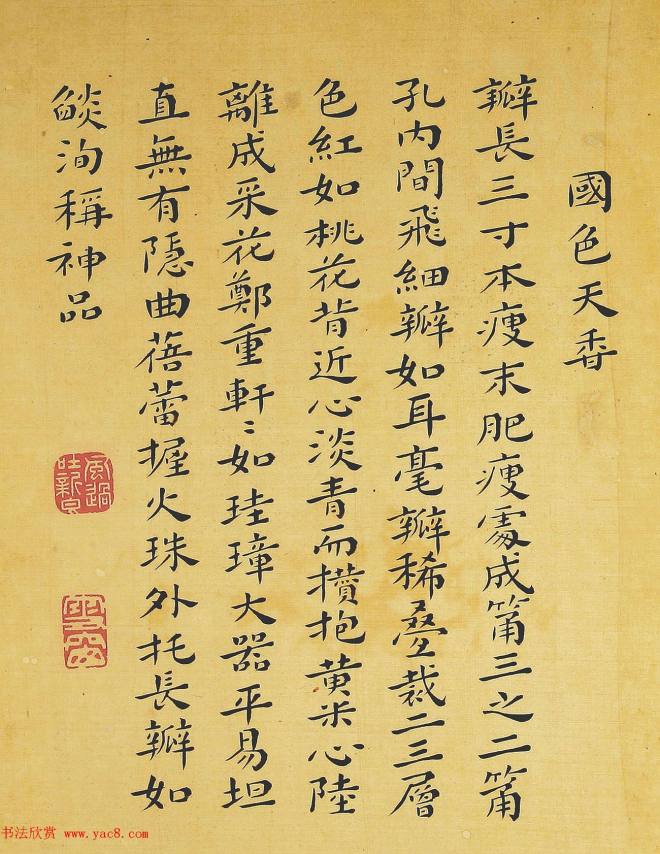 國色天香
瓣長三寸本瘦末肥瘦處成筩三之二筩
孔内間飛細瓣如耳毫瓣稀疊裁二三層
色紅如桃花背近心淡青而攢抱黃米心陸
離成采花鄭重軒〻如珪璋大器平易坦
直無有隱曲蓓蕾握火珠外托長瓣如
燄洵稱神品
书法欣赏 www.yac8.com